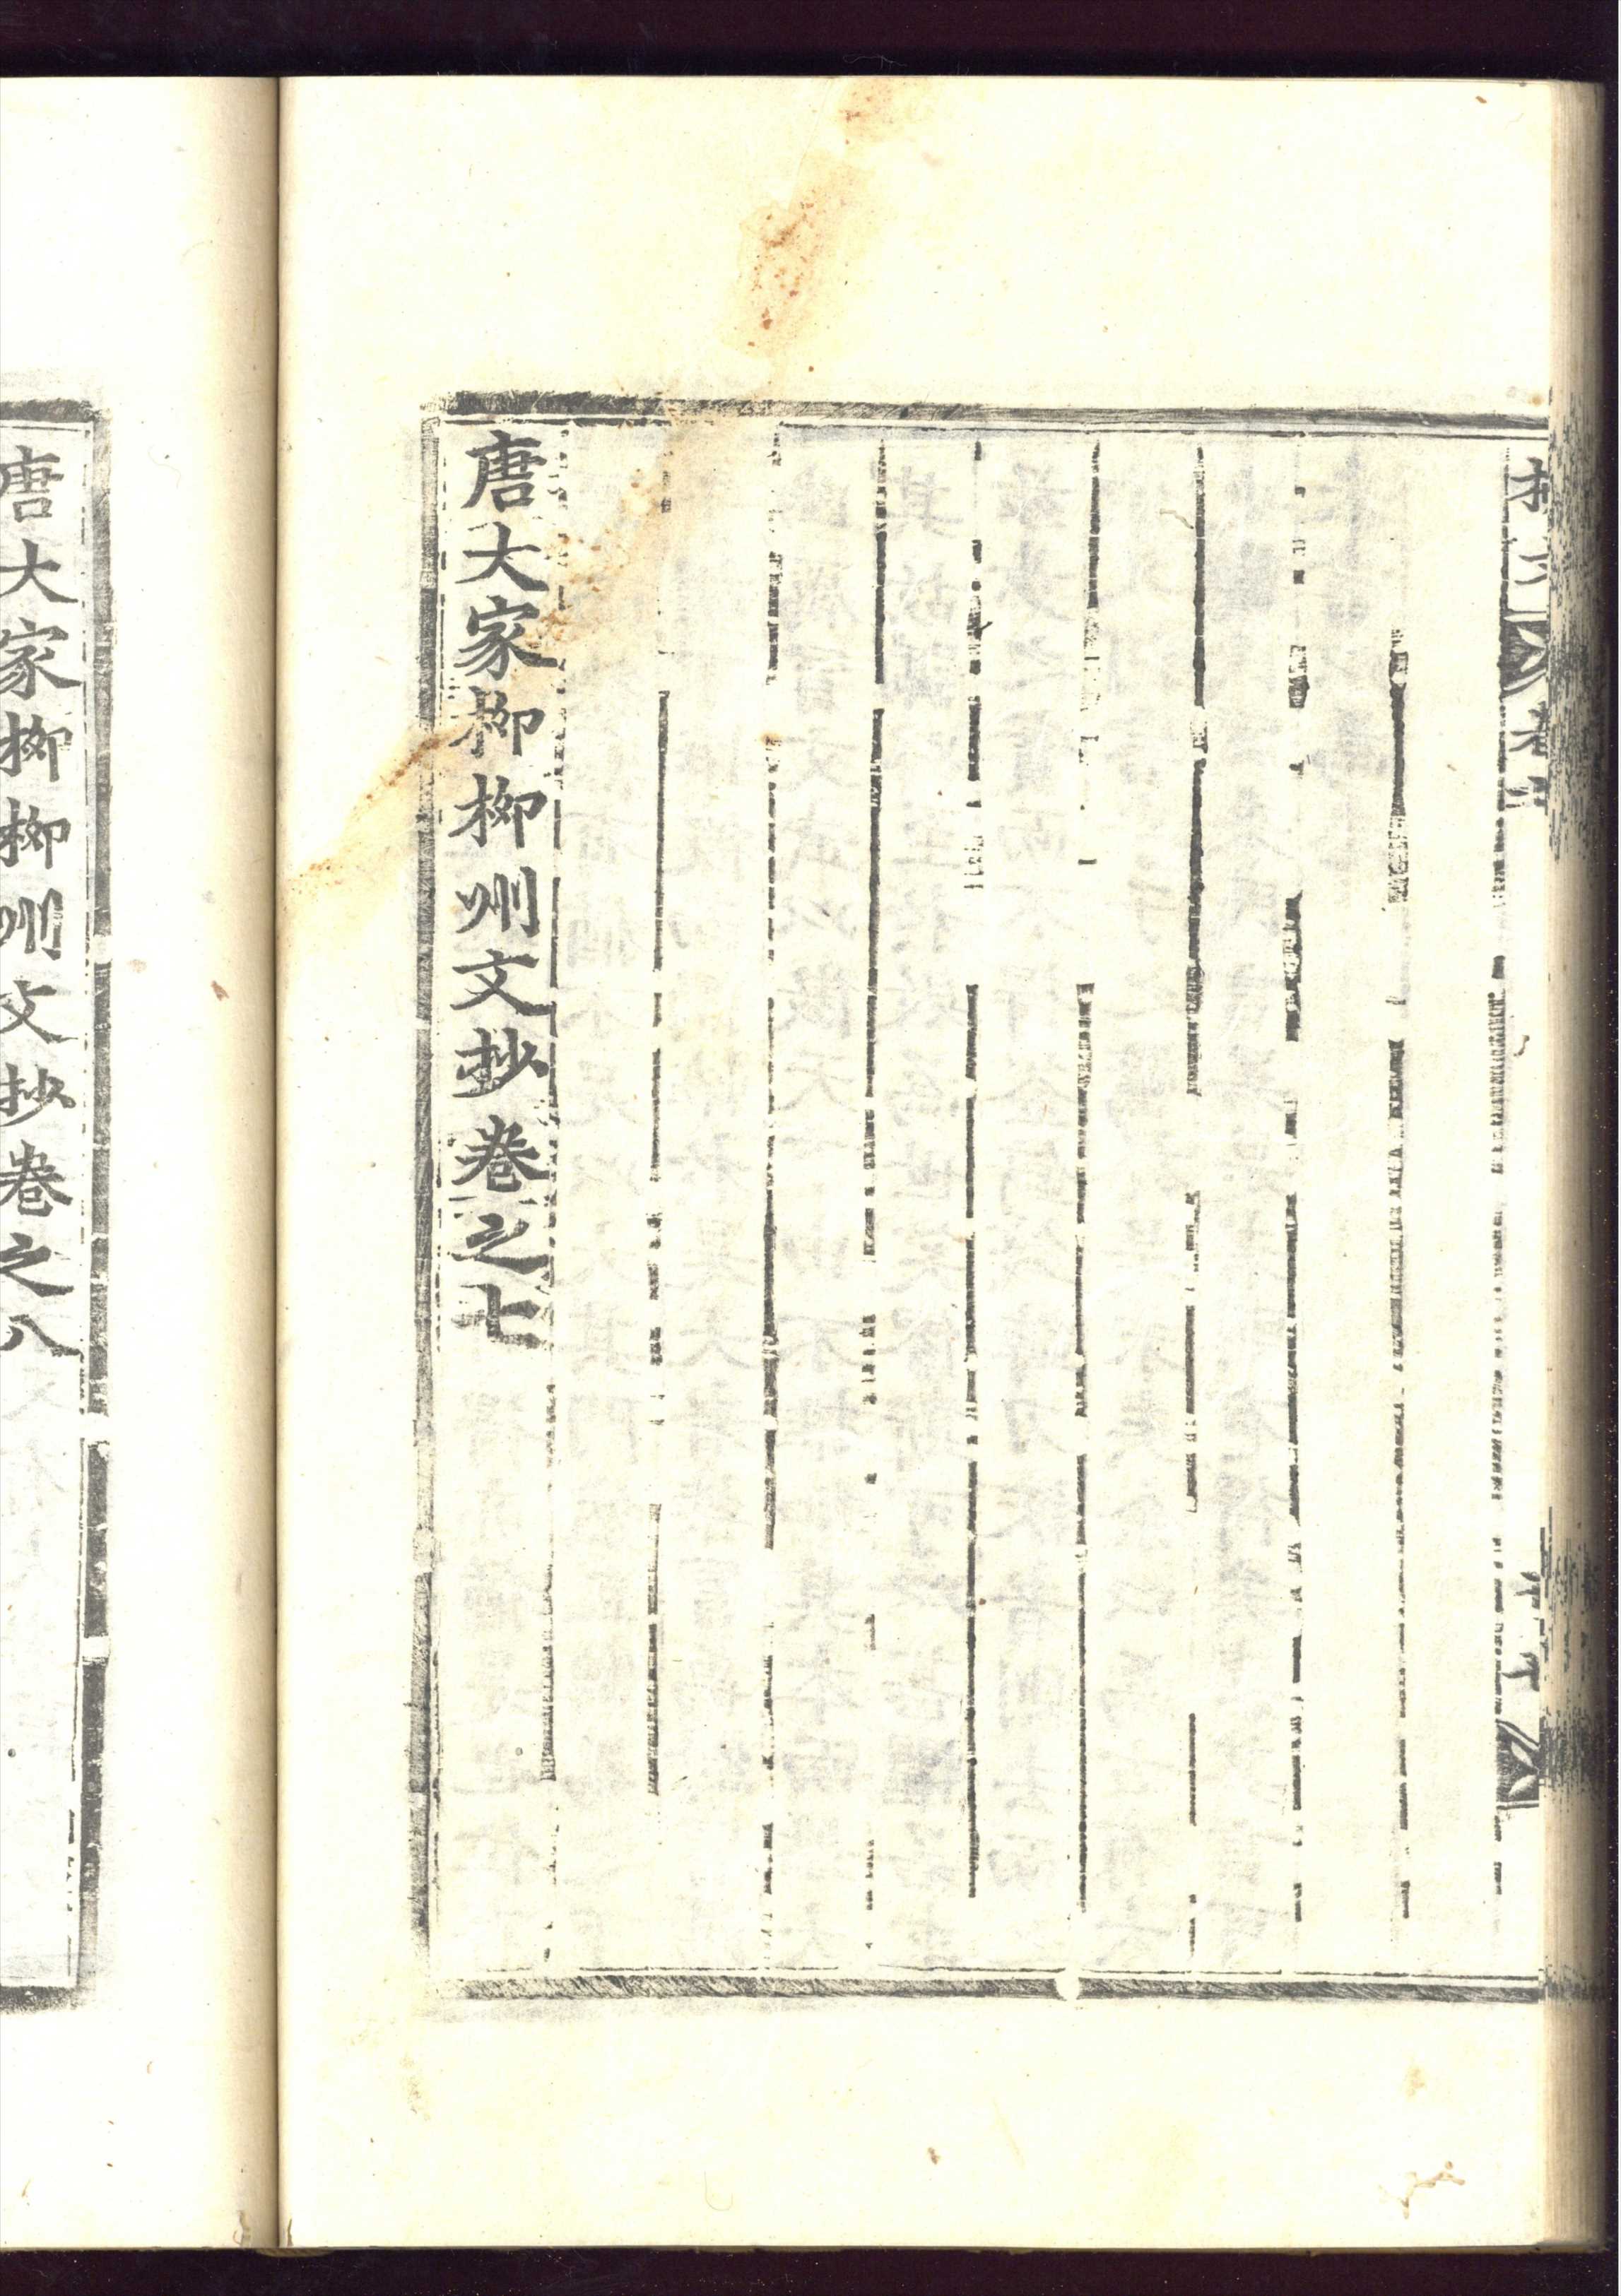 唐大家柳柳州文抄卷之七
唐大家柳柳州文抄卷之八